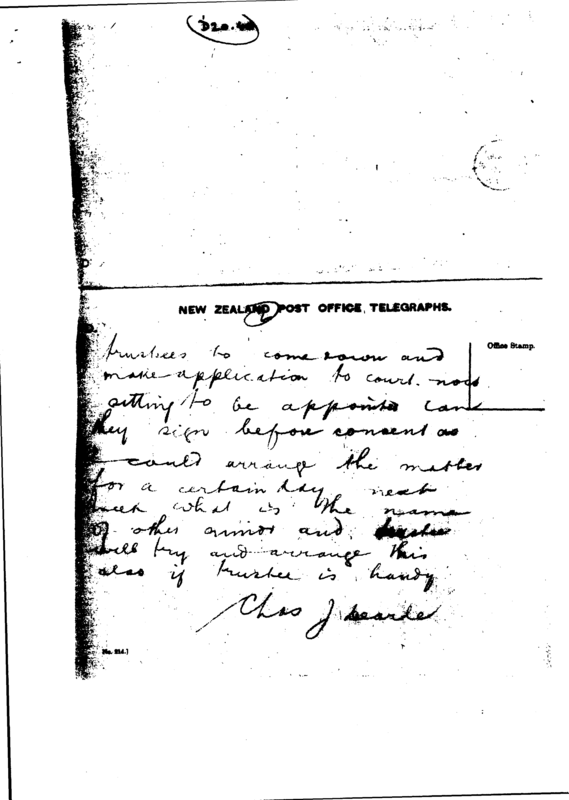 D20.
NEW ZEALAND POST OFFICE TELEGRAPHS.
Office Stamp.
trustees to come down and
make application to court now
sitting to be appointed can
they sign before consent as
I could arrange the matter
for a certain day next
week what is the name
of other minor and trustee
will try and arrange this
also if trustee is handy
Chas J